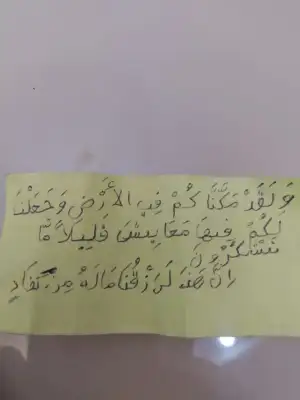 وَلَقَدْ مَكَّنَّا كُمْ فِي الأَرْضِ وَجَعَلْنَا
لَكُمْ فِيهَا مَعَايِشَ قَلِيلاً مَّا
تَشْكُرُونَ
إِنَّ هَذَا لَرِزْقُنَا مَالَهُ مِنْ نَفَادٍ